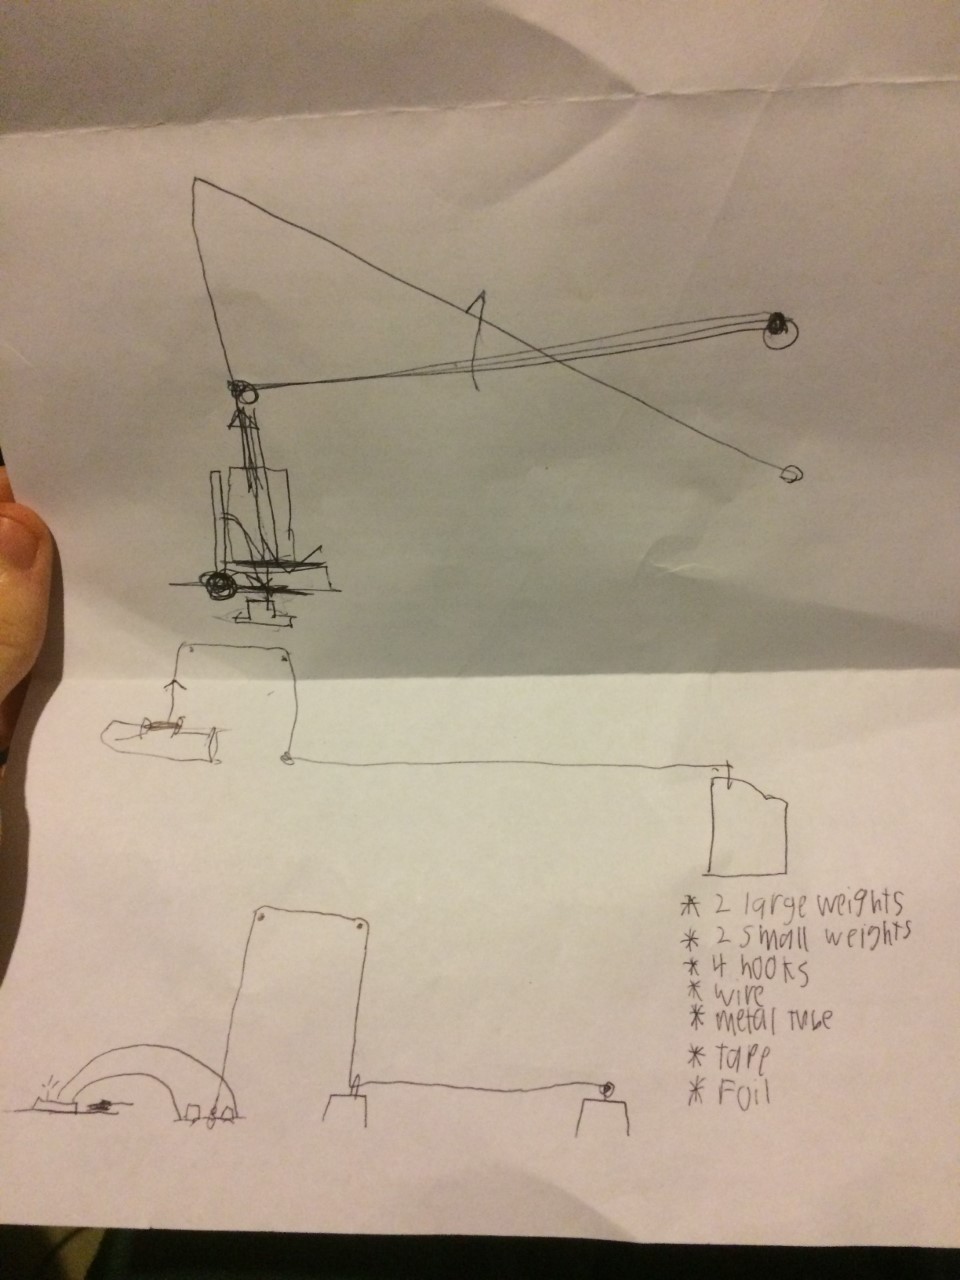 * 2 large weights
* 2 small weights
* 4 hooks
* wire
* metal tube
* tape
* Foil